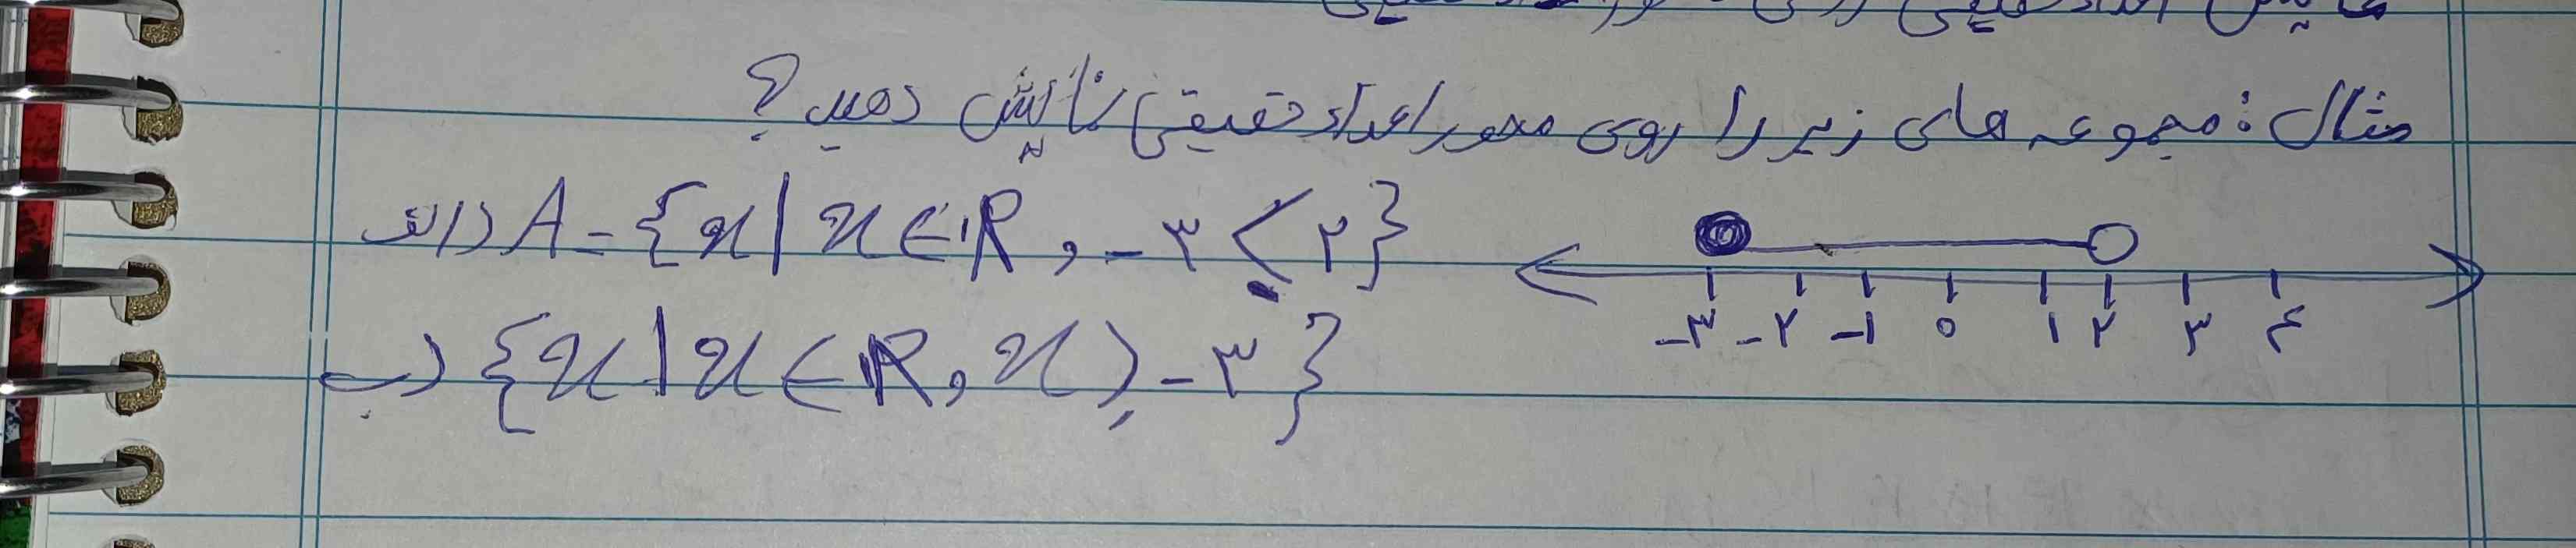 مثال: مجموعه های زیر را روی محور اعداد حقیقی نمایش دهید؟
الف) A = {x | x ∈ R, -۳ ≤ ۲}
-۳ -۲ -۱ ۰ ۱ ۲ ۳ ۴
ب) {x | x ∈ R, x ≥ -۳}